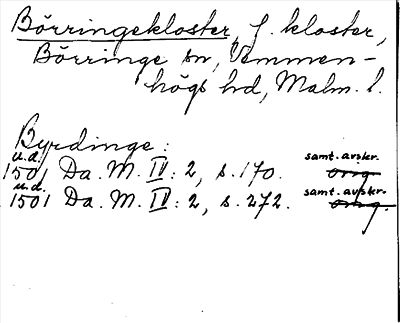 Börringekloster, f. kloster,
Börringe sn, Vemmen-
högs hd, Malm. l.
Byrdinge:
u.d. samt. avskr.
1501 Da. M. IV: 2, s. 170. orig.
u.d. samt. avskr.
1501 Da. M. IV: 2, s. 272. orig.